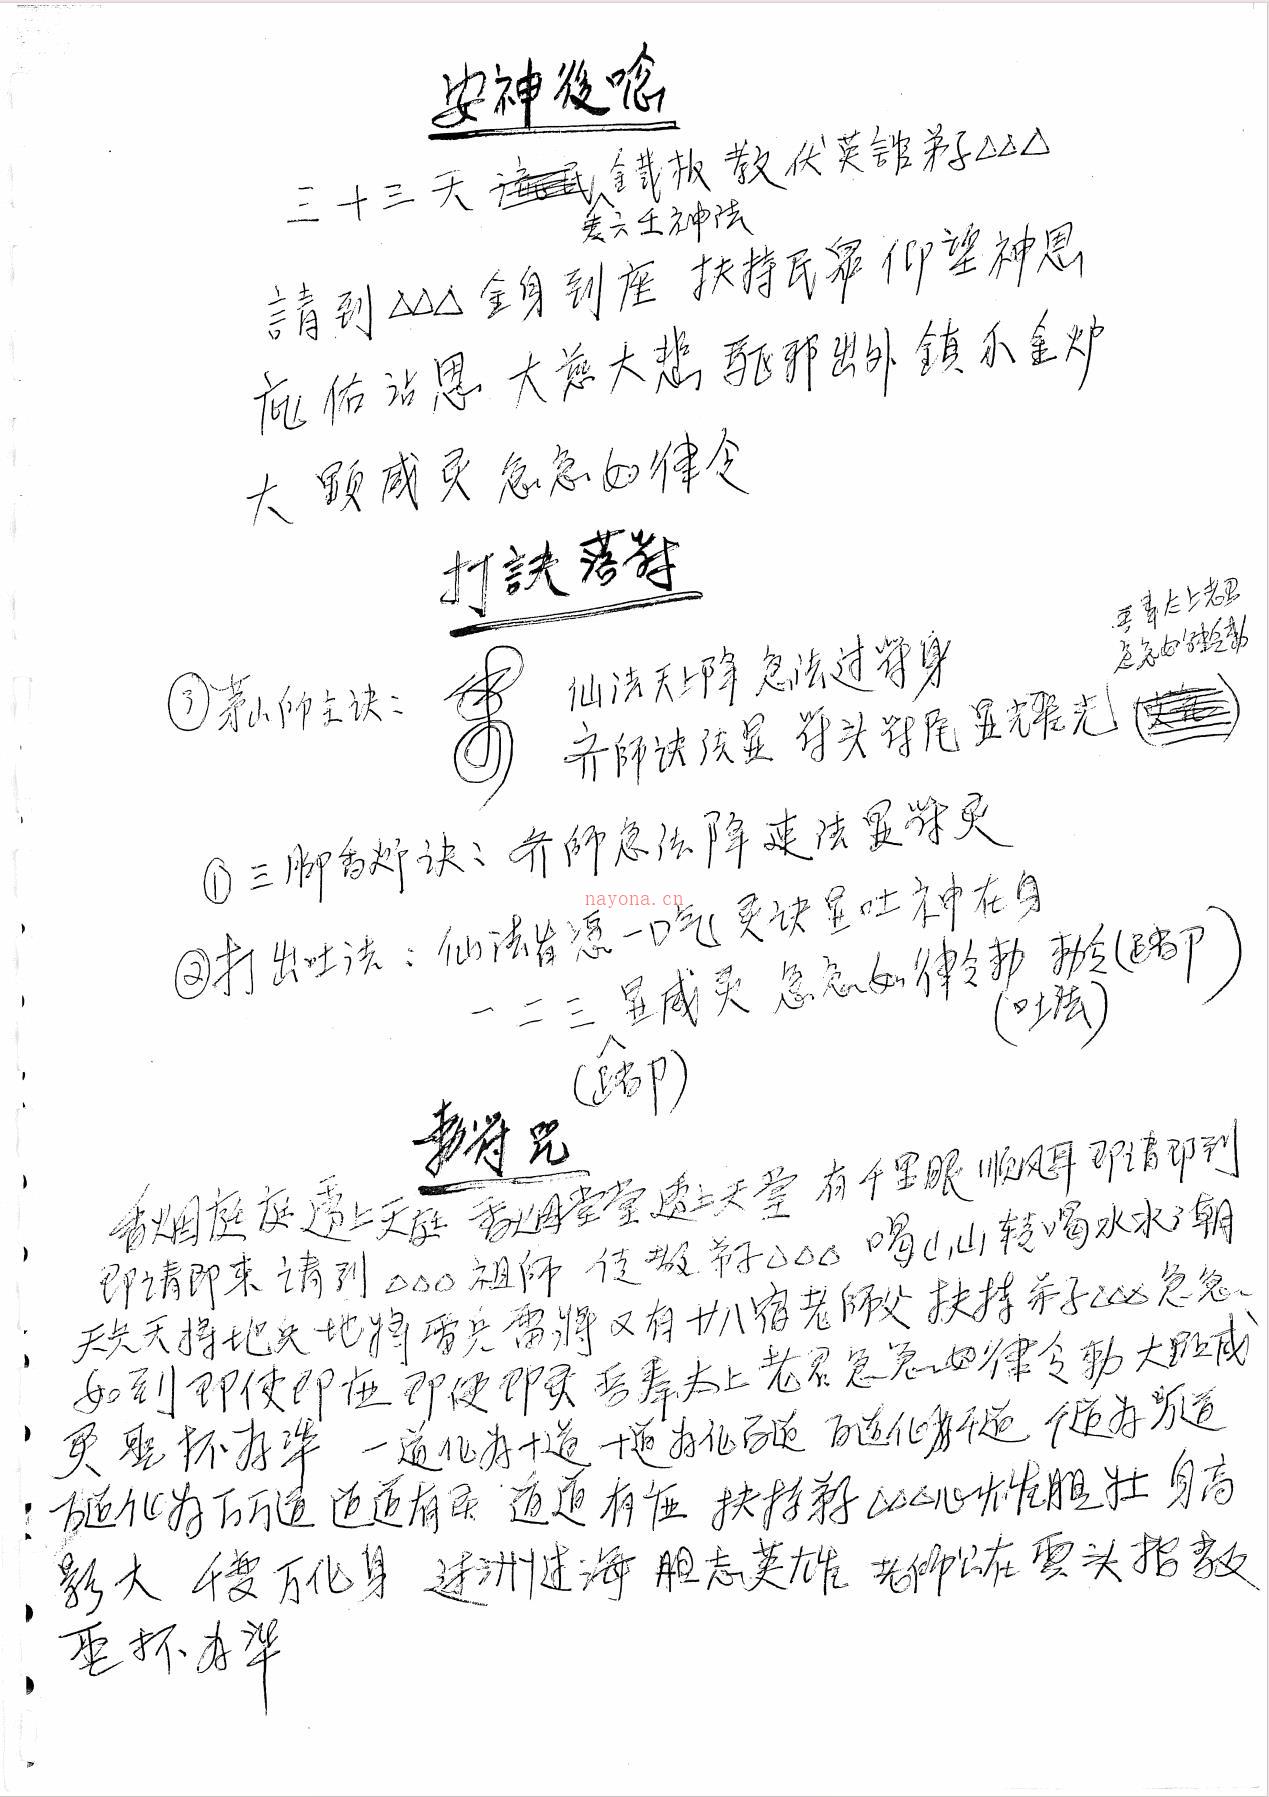 安神後唸
三十三天 鐵板教伏英舘弟子△△△
六壬神法
請到△△△金身到座 扶持民眾 仰望神恩
庇佑沾恩 大慈大悲 驅邪出外 鎮 金炉
大顕威灵 急急如律令
打訣落符
吾奉太上老君
急急如律令勅
③茅山師主诀: 仙法天上降 急法过符身
齐師诀法显 符头符尾显光 光
①三脚香炉诀: 齐師急法降来法显符灵
nayona.cn
②打出吐法: 仙法皆憑一口气 灵诀显吐神在身
一二三 显威灵 急急如律令勅 勅令(踏卩)
(吐法)
(踏卩)
勅符咒
香烟庭庭透上天庭 香烟堂堂透上天堂 有千里眼 順风耳 即请即到
即请即来 请到△△△祖師 传教弟子△△△ 喝山山转喝水水了朝
天兵天将地兵地将雷兵雷將又有廿八宿老師父 扶持弟子△△△急急
如到 即使即应 即使即灵 吾奉太上老君急急如律令勅 大顕威
灵 聖杯为準 一道化为十道 十道为化百道 百道化为千道 千道为萬道
百道化为万万道 道道有灵 道道有应 扶持弟子△△△心雄胆壮 身高
影大 千变万化身 过洲过海 胆志英雄 老師公在雲头指教
聖杯为準